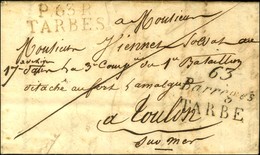 P.63.P.
TARBES
a Monsieur
Monsieur Viennet Soldat au
17e 3e Compie du 1er Bataillon
détaché au fort lamalgue
63
Barreges
TARBE
a Toulon
Sur mer